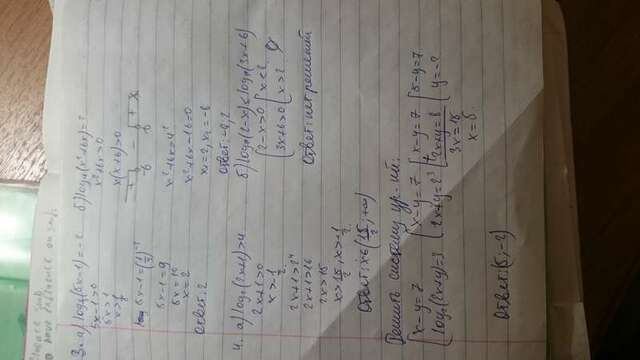 3. а) log(5x-1)=-2
5x-1>0
5x>1
5x-1=9
5x=10
x=2
Ответ: 2
б) log₄(x²+6x)=2
x²+6x>0
x(x+6)>0
+ - +
-6 0 x
x²+6x=4²
x²+6x-16=0
x₁=2, x₂=-8
Ответ: -8, 2
4. а) log₂(2x+1)>4
2x+1>0
x>-1/2
2x+1>2⁴
2x+1>16
2x>15
x>15/2, x>-1/2
Ответ: x∈(15/2; +∞)
2-x>0 x<2
3x+6>0
Ответ: нет решений
Решить систему ур-ий:
x-y=7
log₂(2x+y)=3
x-y=7
2x+y=2³
x-y=7
2x+y=8
3x=15
x=5
5-y=7
y=-2
Ответ: (5; -2)